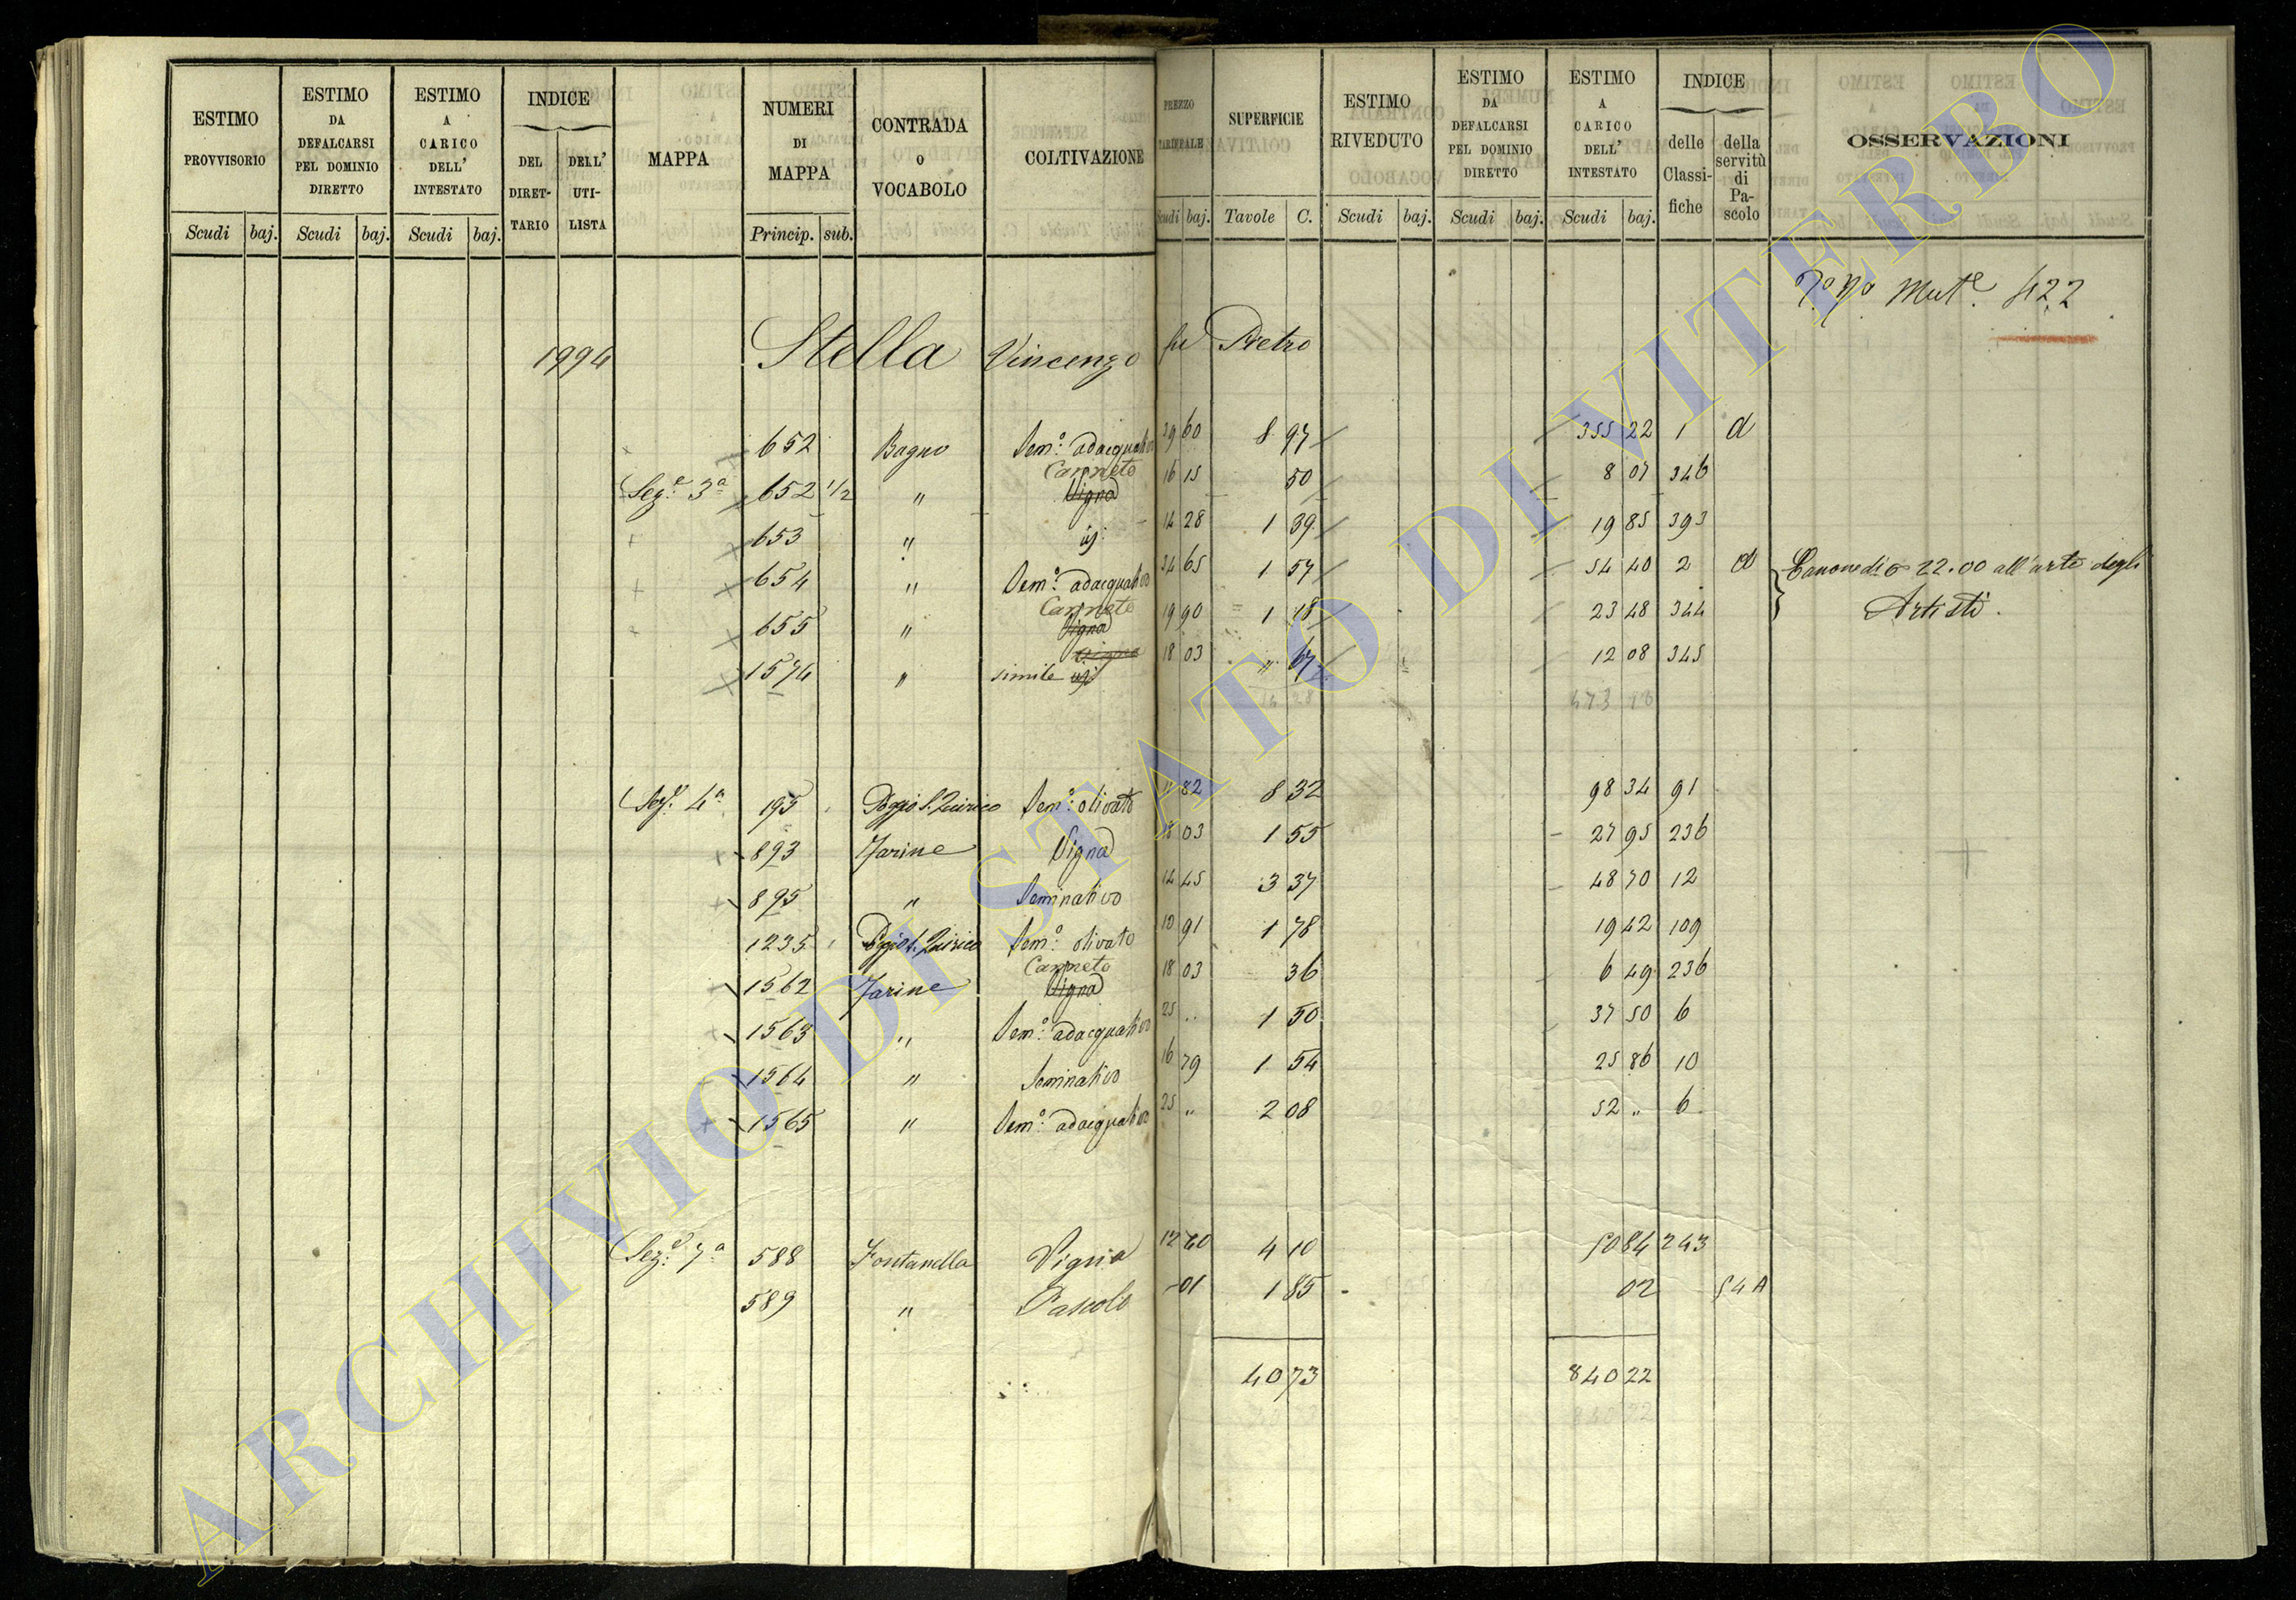 ESTIMO PROVVISORIO
ESTIMO DA DEFALCARSI PEL DOMINIO DIRETTO
ESTIMO A CARICO DELL' INTESTATO
INDICE
DEL DIRET-TARIO
DELL' UTI-LISTA
MAPPA
NUMERI DI MAPPA
CONTRADA O VOCABOLO
COLTIVAZIONE
PREZZO TARIFFALE
SUPERFICIE
ESTIMO RIVEDUTO
ESTIMO DA DEFALCARSI PEL DOMINIO DIRETTO
ESTIMO A CARICO DELL' INTESTATO
INDICE
delle Classi-fiche
della servitù di Pa-scolo
OSSERVAZIONI
Scudi baj. Scudi baj. Scudi baj. Princip. sub. Scudi baj. Tavole C. Scudi baj. Scudi baj. Scudi baj.
Mut.e 422
1994 Stella Vincenzo fu Pietro
652 Bagno Sem.o adacquativo 39 60 8 97 355 22 1 d
Canneto
Sez.e 3a 652 1/2 " Vigna 16 15 50 8 07 346
653 " 14 28 1 39 19 85 393
654 " Sem.o adacquativo 34 65 1 57 54 40 2 d Canone di 22.00 all'arte degli
Canneto
655 " Vigna 19 90 1 18 23 48 344 Artisti.
1574 " simile 18 03 " 67 12 08 345
473 10
Sez.e 4a 195 Poggio S. Quirico Sem.o olivato 11 82 8 32 98 34 91
893 Farine Vigna 18 03 1 55 27 95 236
895 " Seminativo 14 45 3 37 48 70 12
1235 Poggio S. Quirico Sem.o olivato 10 91 1 78 19 42 109
Canneto
1562 Farine Vigna 18 03 36 6 49 236
1563 " Sem.o adacquativo 25 .. 1 50 37 50 6
1564 " Seminativo 16 79 1 54 25 86 10
1565 " Sem.o adacquativo 25 " 2 08 52 " 6
Sez.e 7a 588 Fontanella Vigna 12 40 4 10 50 84 243
589 " Pascolo -01 1 85 02 54 A
40 73 840 22
840 22
ARCHIVIO DI STATO DI VITERBO